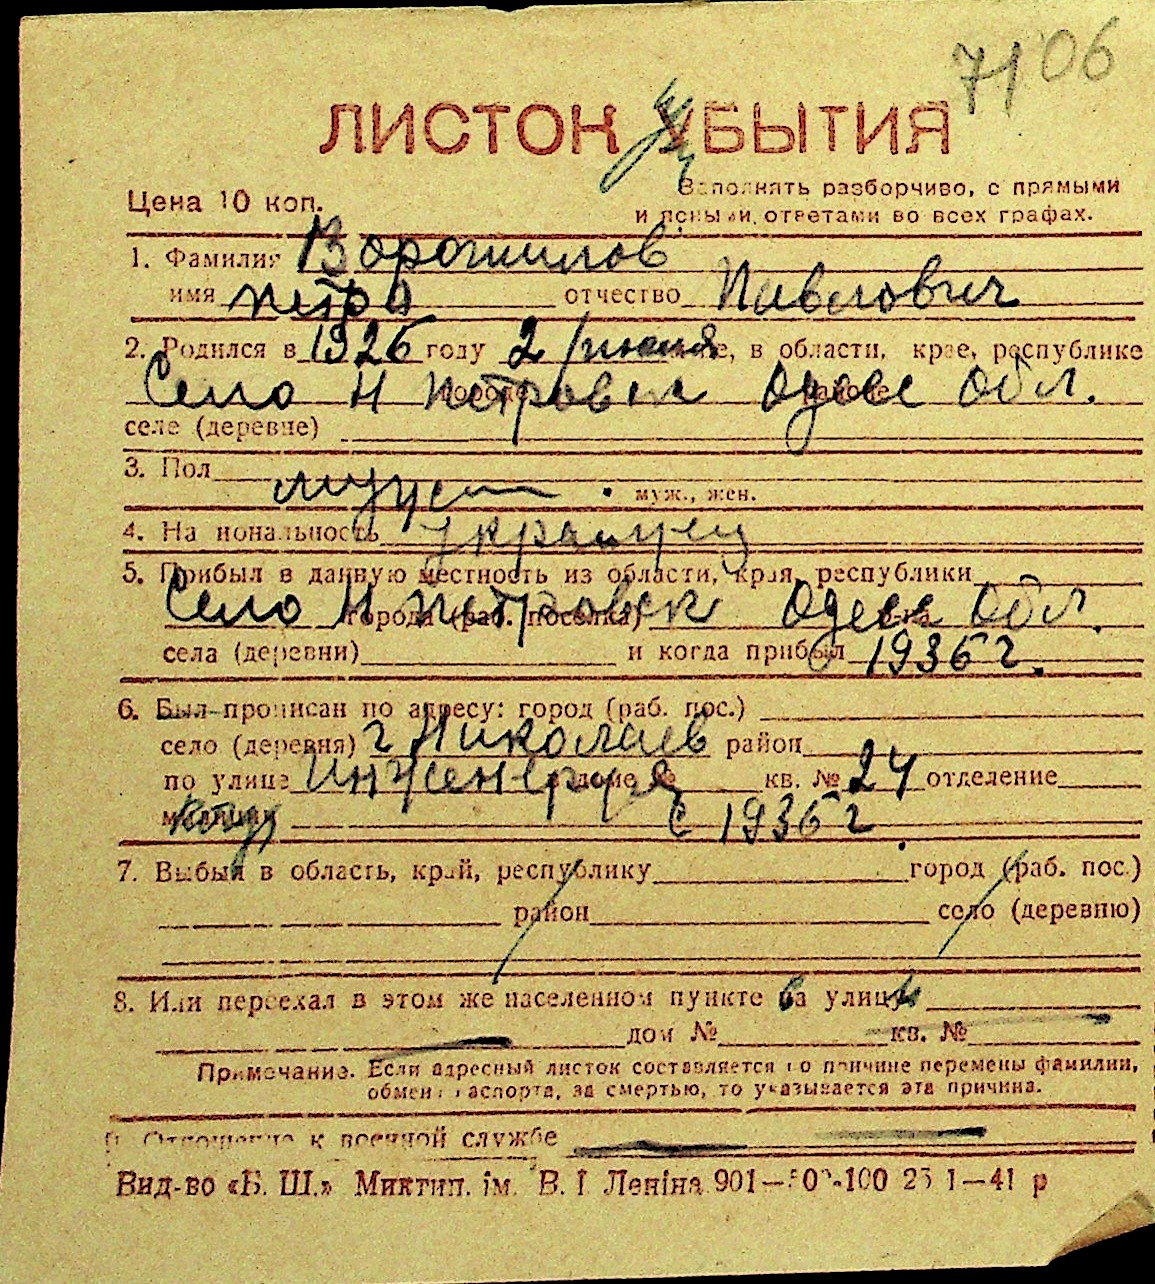 7106
ЛИСТОК УБЫТИЯ
Заполнять разборчиво, с прямыми
Цена 10 коп.
и ясными ответами во всех графах.
1. Фамилия Ворошилов
имя Петро отчество Павлович
2. Родился в 1926 году 2/июня е, в области, крае, республике
Село Н Петровск городе Одесс районе обл.
селе (деревне)
3. Пол мужст
муж., жен.
4. Национальность украинец
5. Прибыл в данную местность из области, края, республики
Село Н Петровск города (раб. поселка) Одесск обл.
села (деревни) и когда прибыл 1936 г.
6. Был прописан по адресу: город (раб. пос.)
село (деревня) г Николаев район
по улице доме № кв. № 24 отделение
милиции с 1936 г.
7. Выбыл в область, край, республику город (раб. пос.)
район село (деревню)
8. Или переехал в этом же населенном пункте на улицу
дом № кв. №
Примечание. Если адресный листок составляется по причине перемены фамилии,
обмена паспорта, за смертью, то указывается эта причина.
9. Отношение к военной службе
Вид-во «Б. Ш.» Миктип. ім. В. І Леніна 901—100 1—41 р